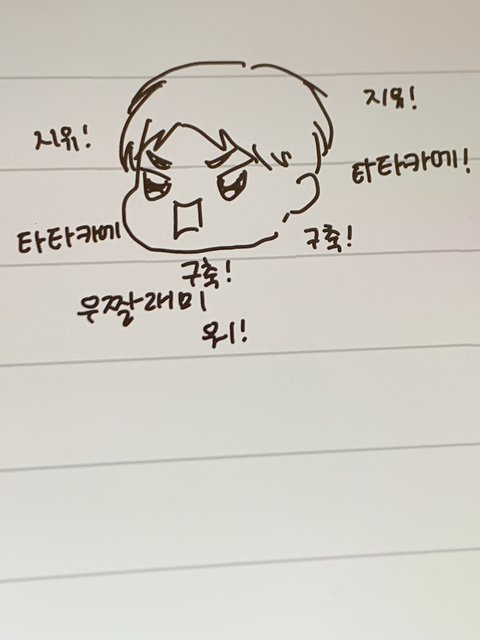 지유!
지유!
타타카에!
타타카에
구축!
구축!
우짤래미